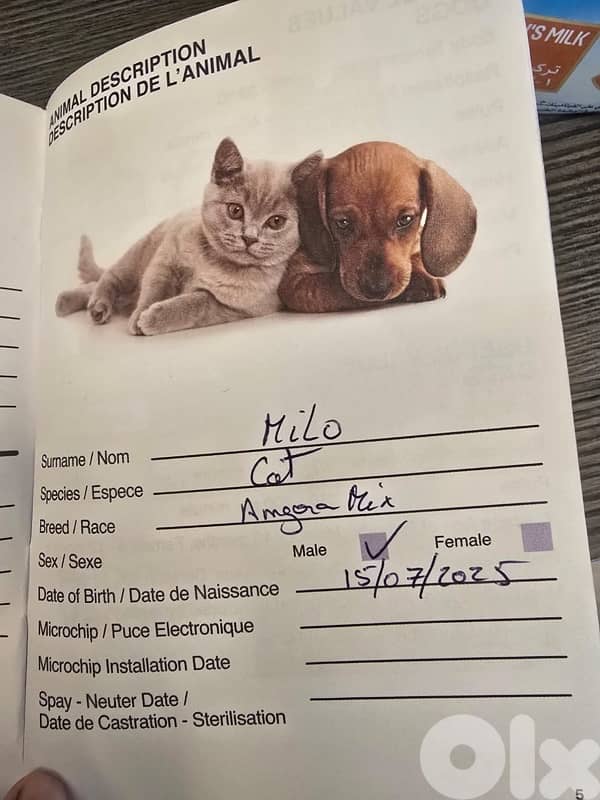 'S MILK
ANIMAL DESCRIPTION
DESCRIPTION DE L'ANIMAL
Surname / Nom Milo
Species / Espece Cat
Breed / Race Amgora Mix
Sex / Sexe Male ✓ Female
Date of Birth / Date de Naissance 15/07/2025
Microchip / Puce Electronique
Microchip Installation Date
Spay - Neuter Date /
Date de Castration - Sterilisation
5
Olx